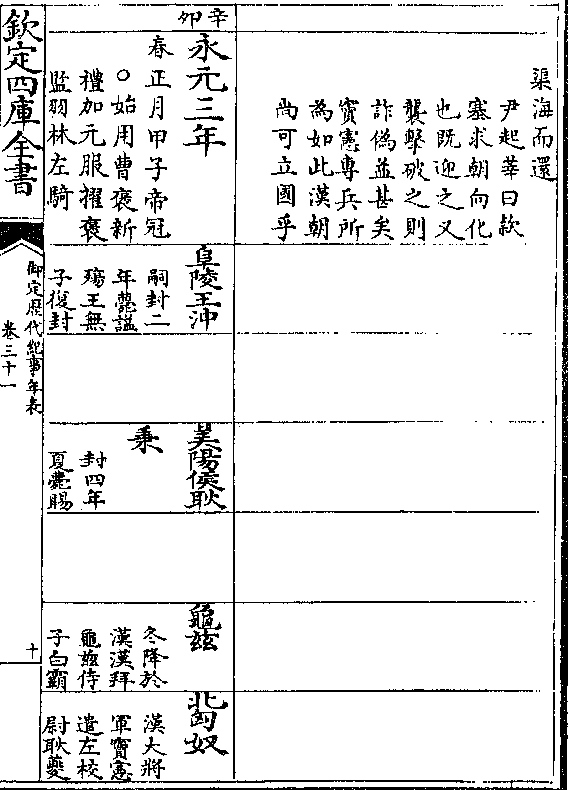 渠海而還
尹起莘曰款
塞求朝向化
也既迎之又
襲擊破之則
詐僞並甚矣
竇憲專兵所
為如此漢朝
尚可立國乎
辛卯
永元三年
春正月甲子帝冠
○始用曹褒新
禮加元服擢褒
監羽林左騎
阜陵王沖
嗣封二
年薨諡
殤王無
子復封
美陽侯耿
秉
封四年
夏薨賜
龜兹
冬降於
漢漢拜
龜兹侍
子白霸
北匈奴
漢大將
軍竇憲
遣左校
尉耿夔
欽定四庫全書
御定歷代紀事年表
卷三十一
十